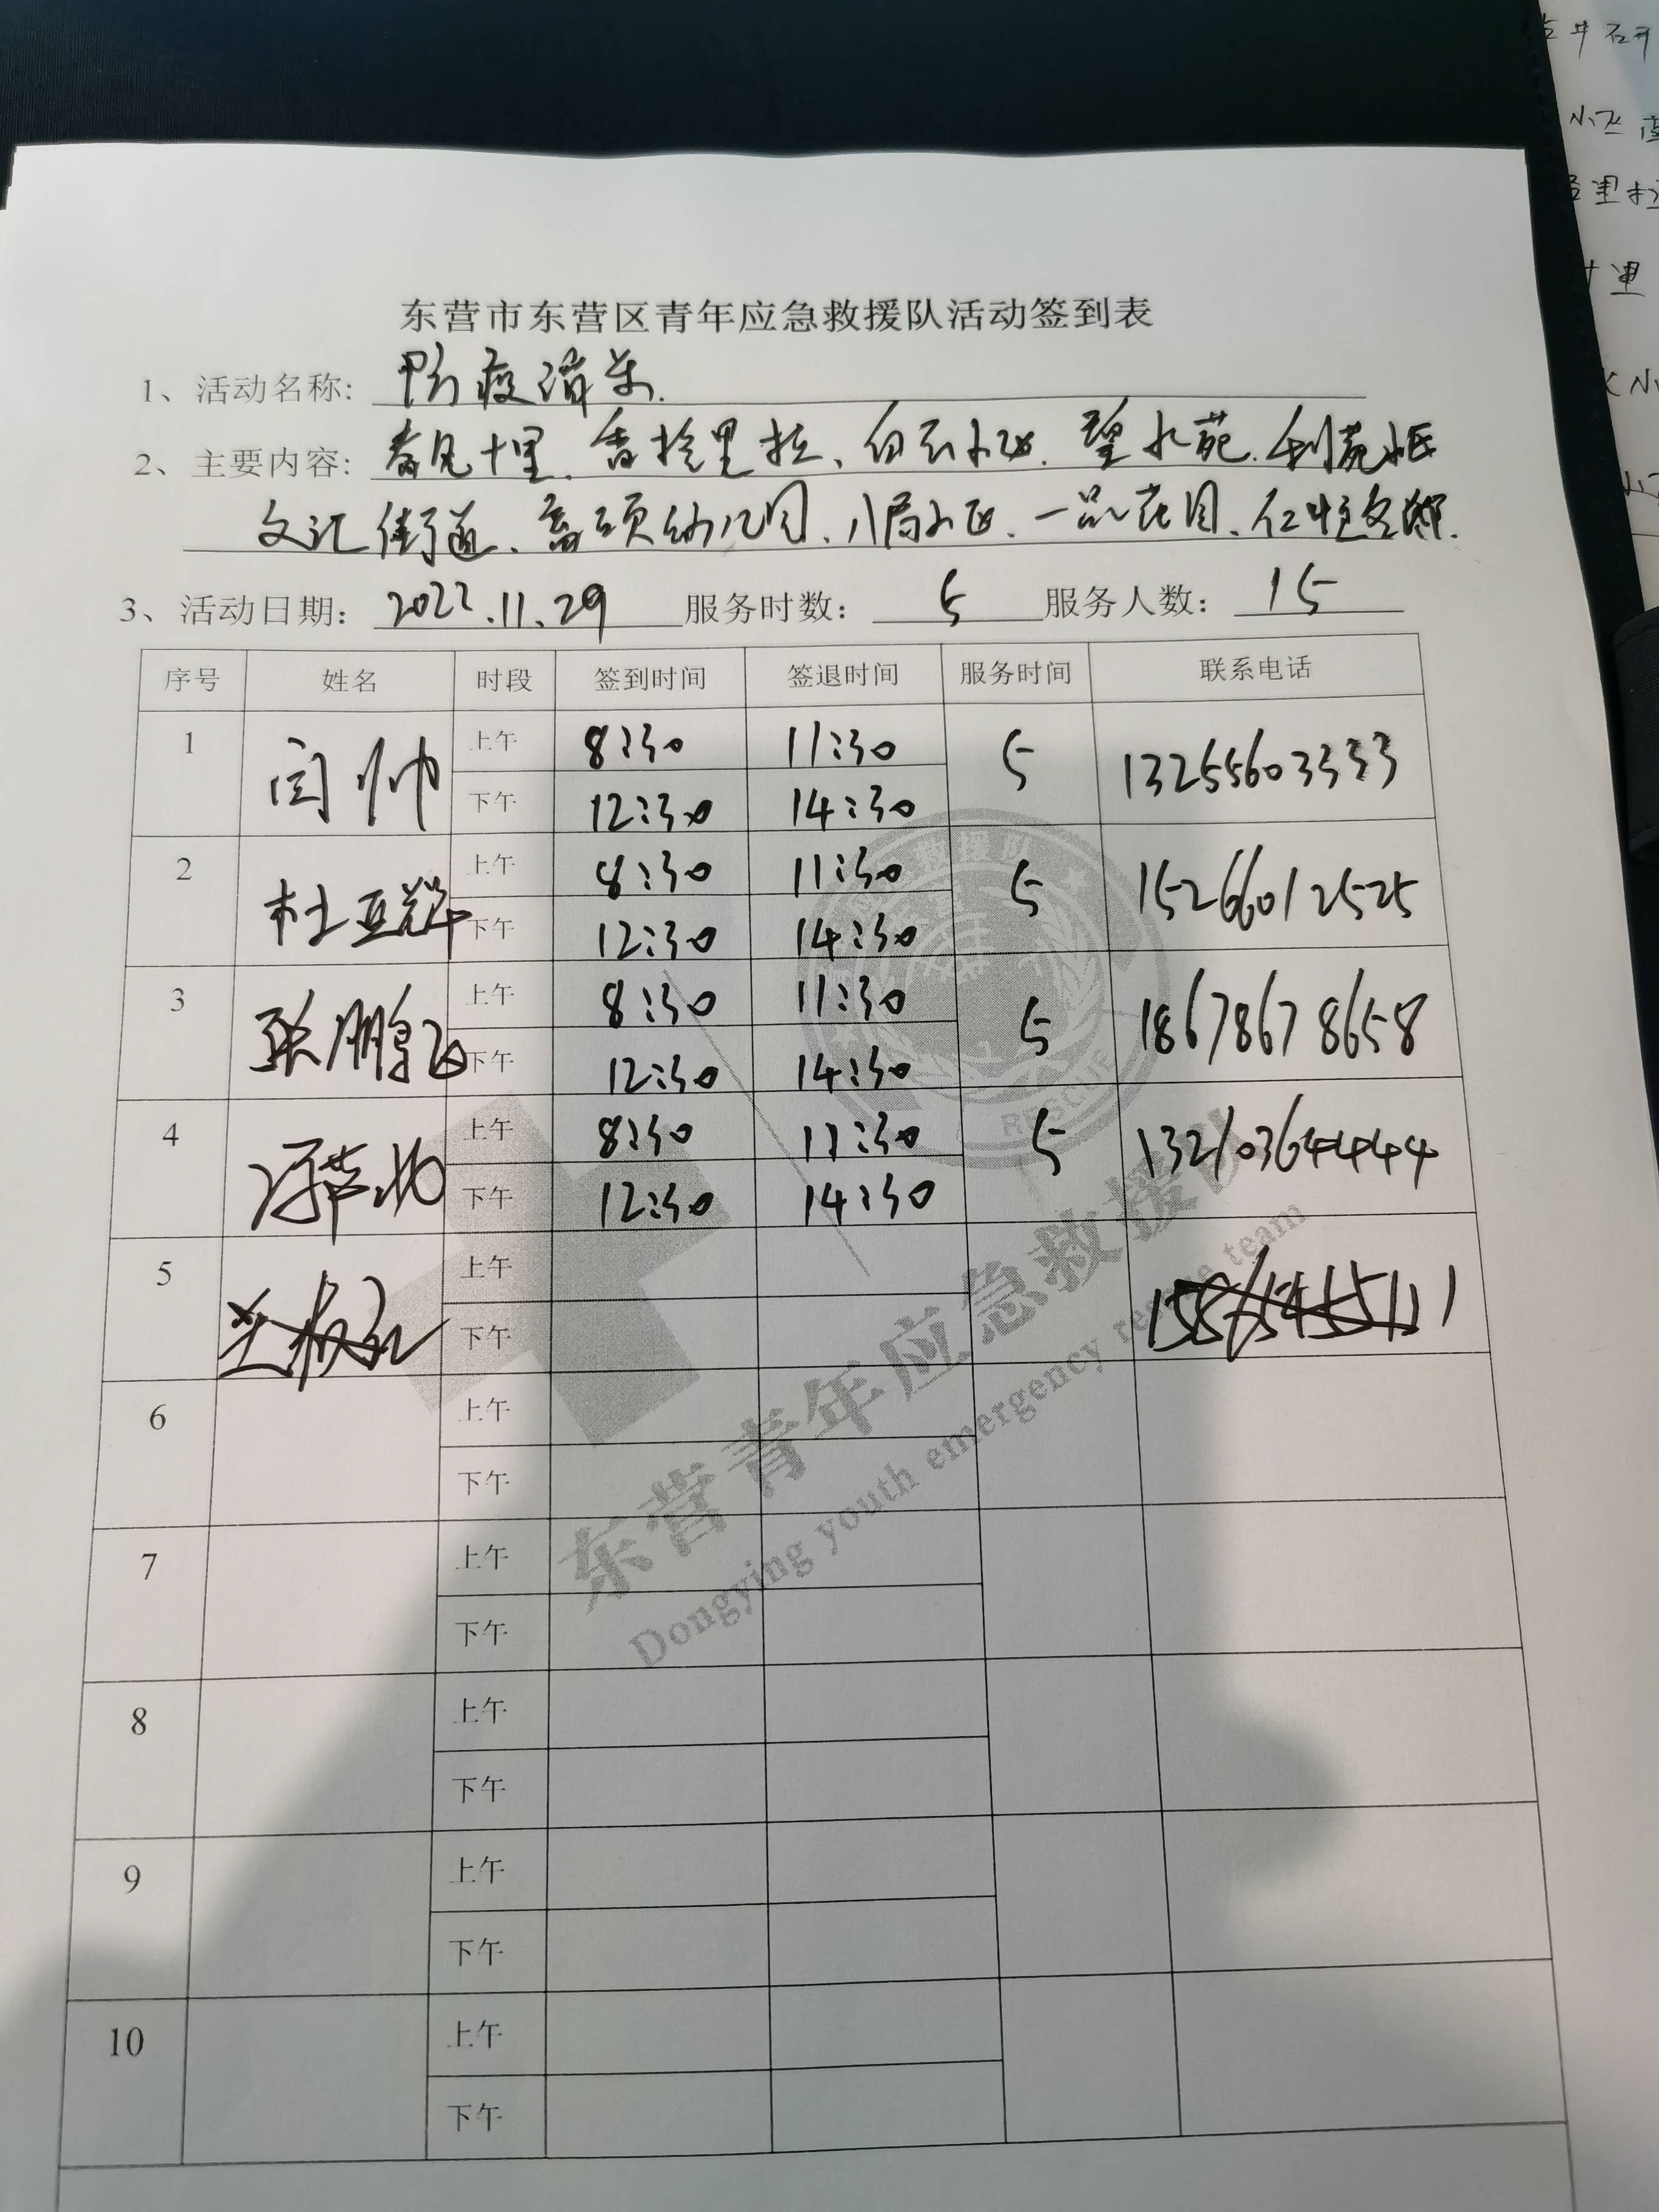 东营市东营区青年应急救援队活动签到表
1、活动名称: 防疫消杀.
2、主要内容: 春风十里、香格里拉、白云小区、望水苑、利苑小区
文汇街道、幼儿园、八局小区、一品花园、仁恒
3、活动日期: 2022.11.29 服务时数: 5 服务人数: 15
序号 姓名 时段 签到时间 签退时间 服务时间 联系电话
1 闫帅 上午 8:30 11:30 5 13255603333
下午 12:30 14:30
2 杜亚辉 上午 8:30 11:30 5 15266012525
下午 12:30 14:30
3 张鹏飞 上午 8:30 11:30 5 18678678658
下午 12:30 14:30
4 上午 8:30 11:30 5 13210364444
下午 12:30 14:30
5 上午
下午
6 上午
下午
7 上午
下午
8 上午
下午
9 上午
下午
10 上午
下午
RESCUE
东营青年应急救援队
Dongying youth emergency rescue team
小飞
里